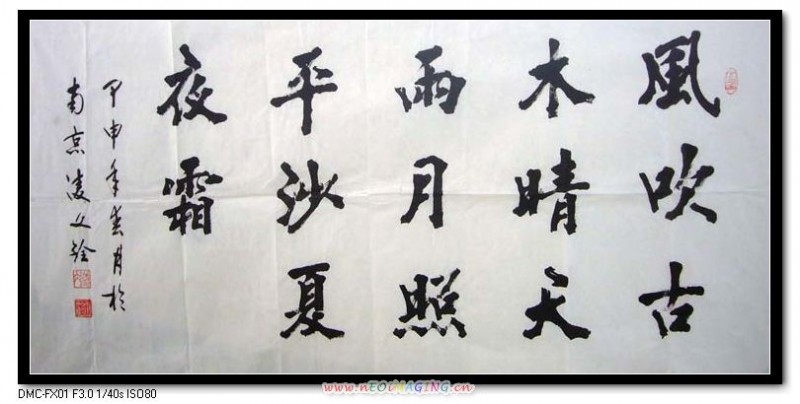 風吹古
木晴天
雨月照
平沙夏
夜霜
甲申年春月於
南京凌文銓
DMC-FX01 F3.0 1/40s ISO80
www.nEOiMAGING.cn